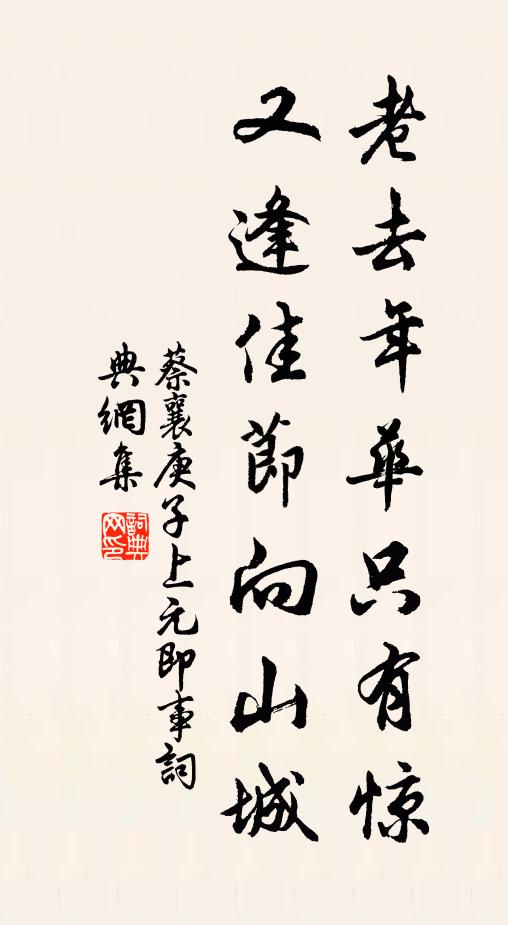 老去年華只有惊
又逢佳節向山城
蔡襄庚子上元即事詞
典網集
詞典網印